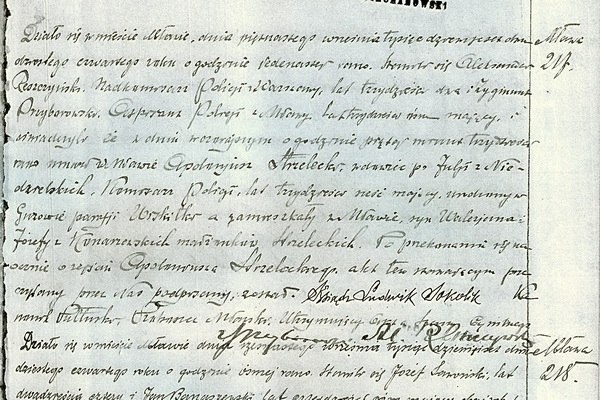 Działo się w mieście Mławie, dnia piętnastego września tysiąc dziewięćset dwu- Mława
dziestego czwartego roku o godzinie jedenastej rano. Stawił się Aleksander 217.
Reszczyński, Nadkomisarz Policyi z Warszawy, lat trzydzieści dwa i Zygmunt
Przyborowski, Aspirant Policyi z Mławy, lat trzydzieści mający, i
oświadczyli że w dniu wczorajszym o godzinie piątej minut trzydzieści
rano umarł w Mławie Apolinary Strzelecki, wdowiec po Julji z Nie-
dzielskich, Komisarz Policyi, lat trzydzieści sześć mający, urodzony w
parafji a zamieszkały w Mławie, syn Waleryana i
Józefy z Konarzewskich małżonków Strzeleckich. Po przekonaniu się na-
ocznie o zejściu Apolinarego Strzeleckiego, akt ten stawającym prze-
czytany przez Nas podpisany został. Ksiądz Ludwik Sokolik Ka-
nonik Pułtuski, Mławski, Utrzymujący
Działo się w mieście Mławie dnia września tysiąc dziewięćset dwu- Mława
dziestego czwartego roku o godzinie ósmej rano. Stawił się Józef lat 218.
dwadzieścia cztery i Jan lat